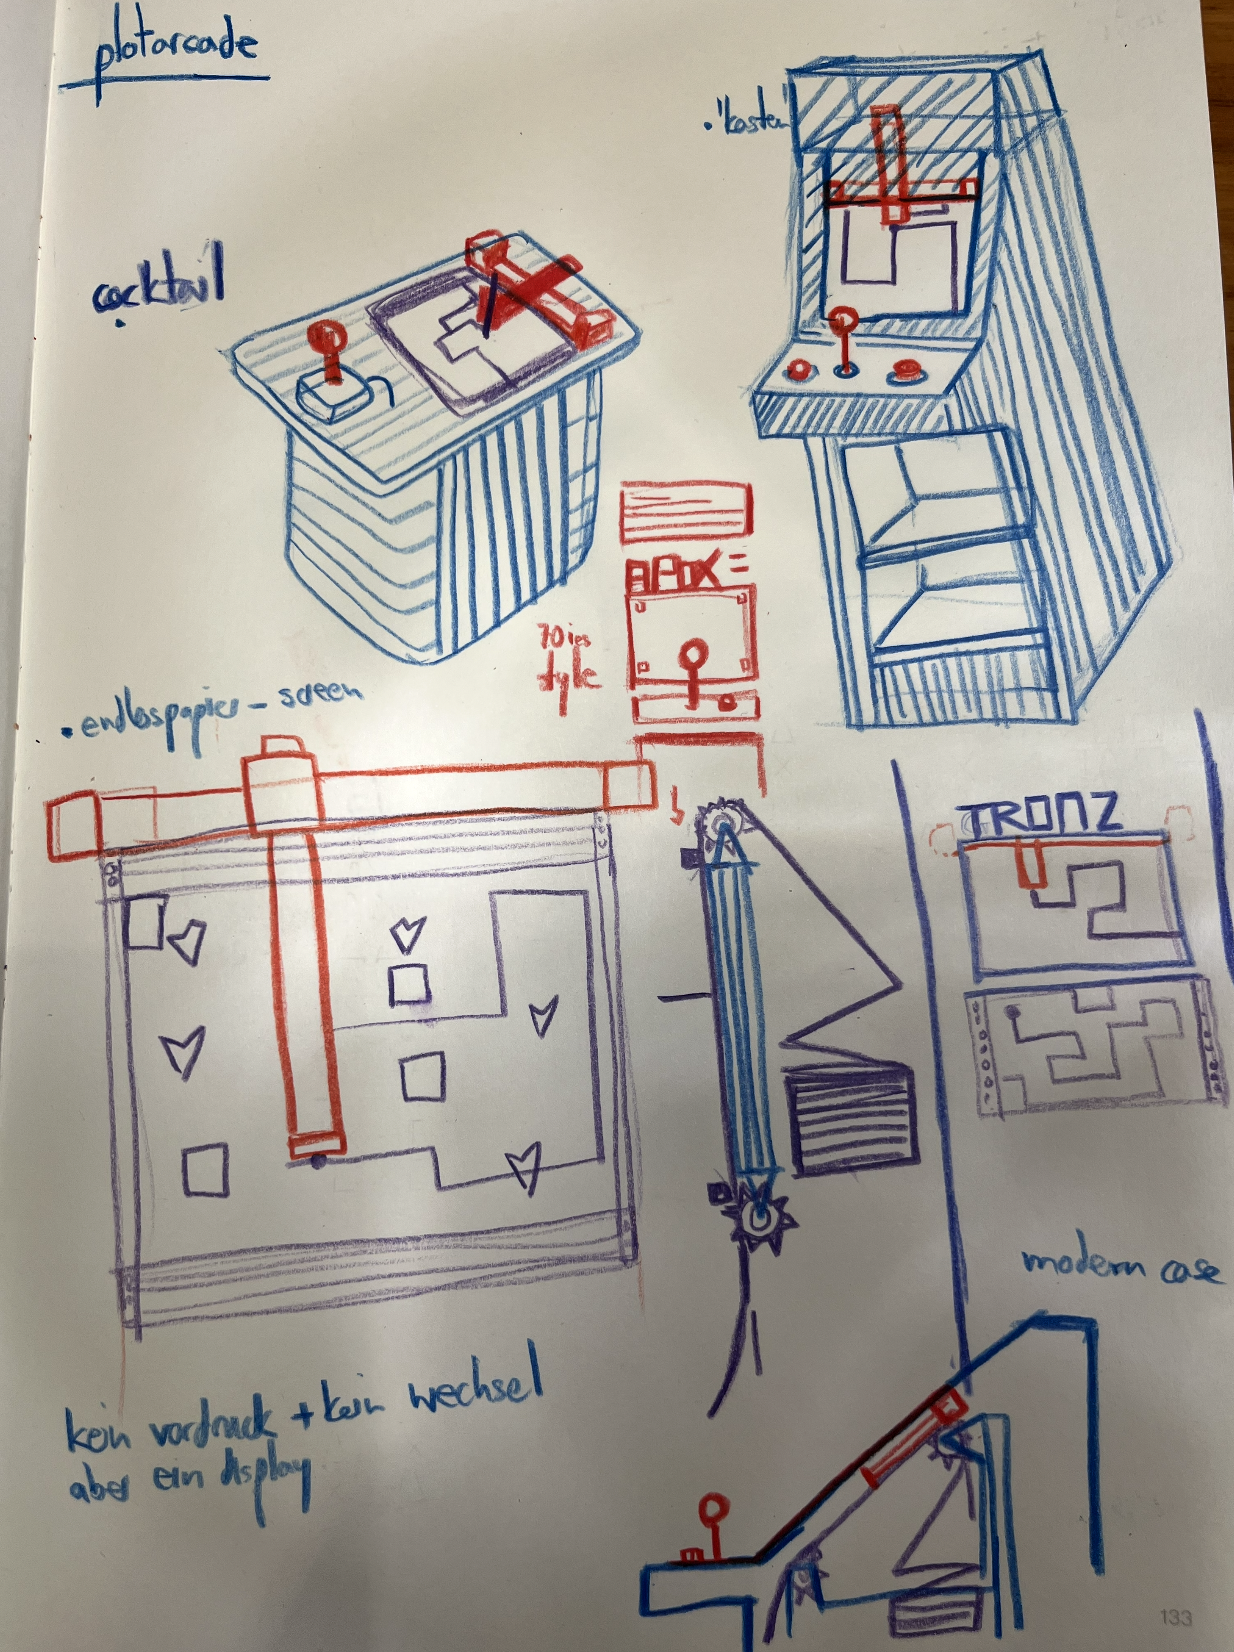 plotarcade
• "kasten"
cocktail
APOX=
70ies
style
• endlospapier - screen
TRONZ
modern case
kein vordruck + kein wechsel
aber ein display
133